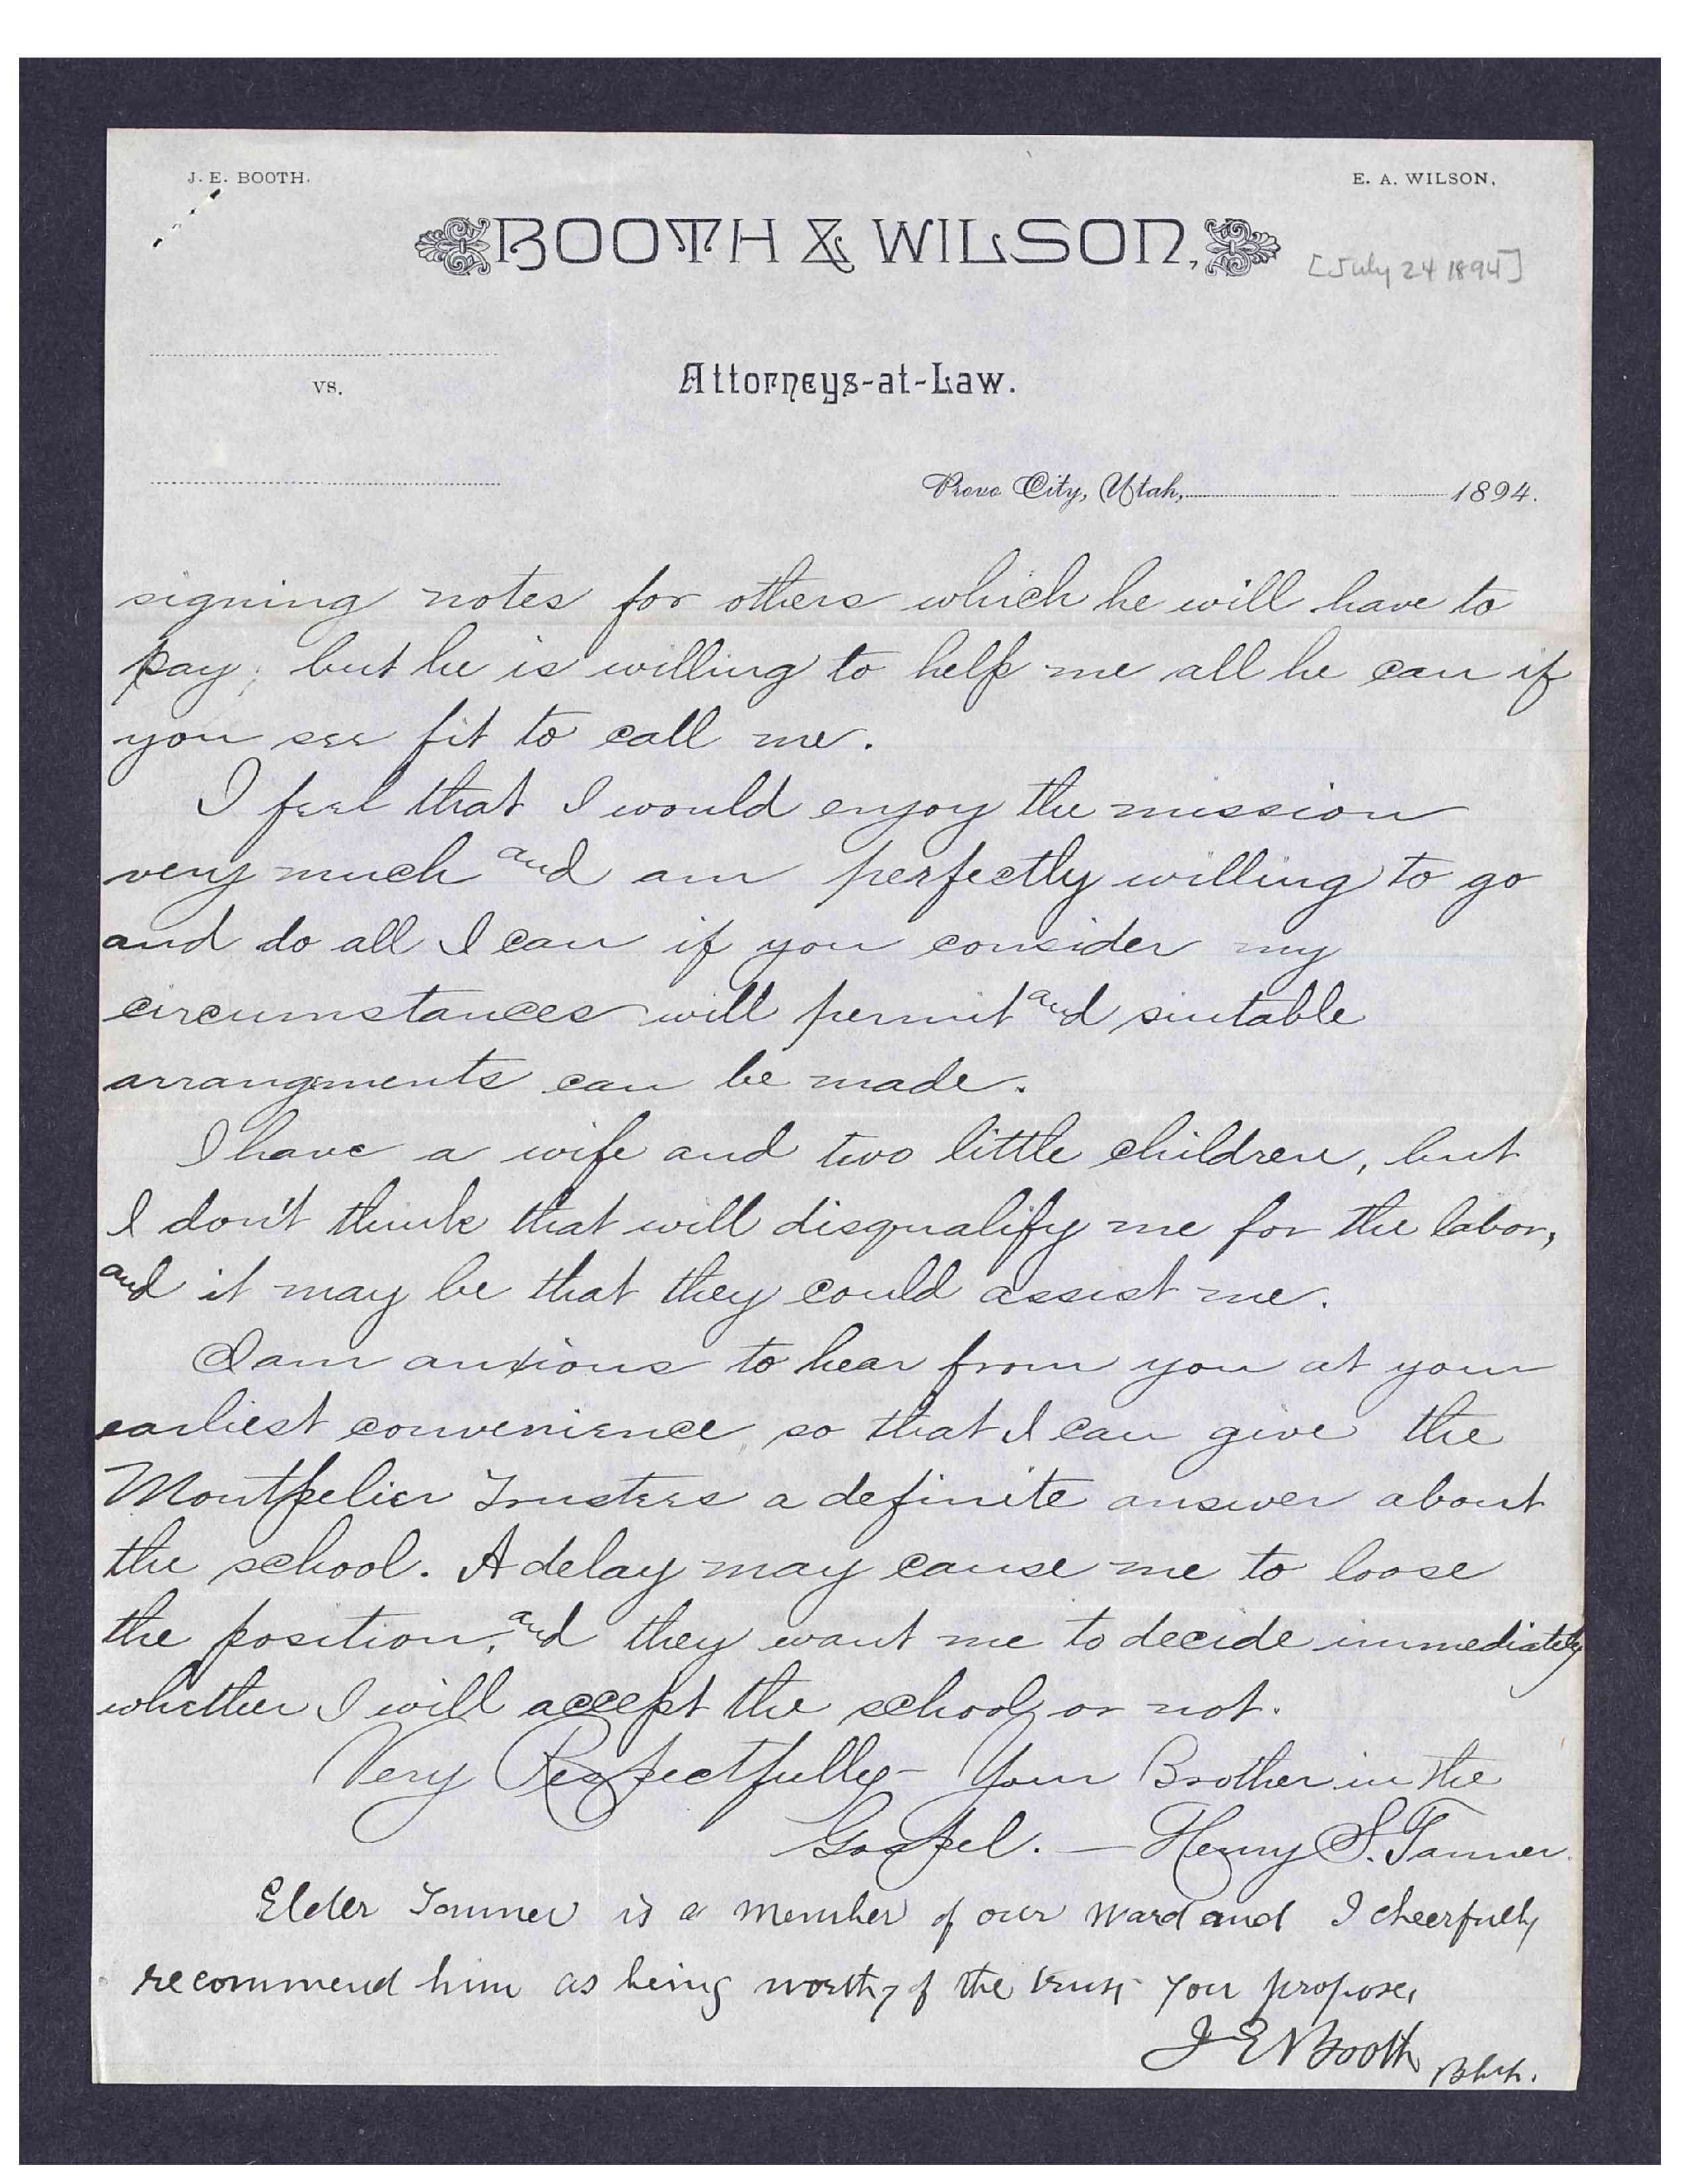 J. E. BOOTH.
E. A. WILSON,
BOOTH & WILSON,
[July 24 1894]
VS.
Attorneys-at-Law.
Provo City, Utah, 1894.
signing notes for others which he will have to
pay; but he is willing to help me all he can if
you see fit to call me.
I feel that I would enjoy the mission
very much and am perfectly willing to go
and do all I can if you consider my
circumstances will permit and suitable
arrangements can be made.
I have a wife and two little children, but
I don't think that will disqualify me for the labor,
and it may be that they could assist me.
I am anxious to hear from you at your
earliest convenience, so that I can give the
Montpelier Trustees a definite answer about
the school. A delay may cause me to loose
the position, and they want me to decide immediately
whether I will accept the school or not.
Very Respectfully - Your Brother in the
Gospel. - Henry S. Tanner.
Elder Tanner is a member of our ward and I cheerfully
recommend him as being worthy of the trust you propose,
J E Booth Bhp.